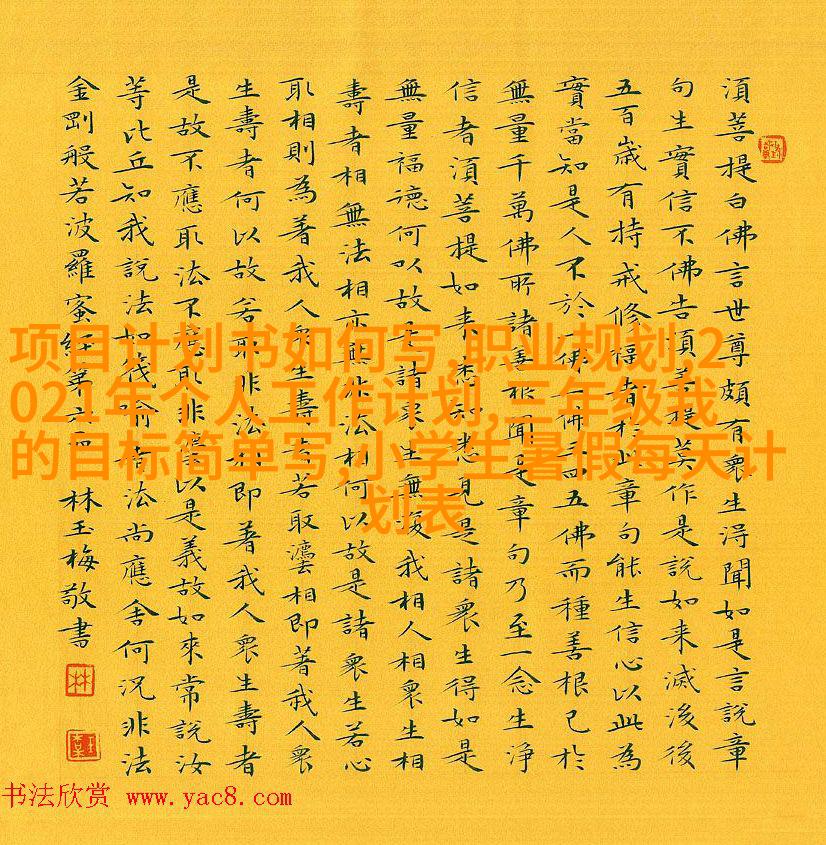 須菩提白佛言世尊頗有衆生淂聞如是言說章
句生實信不佛告須菩提莫作是說如来滅後後
五百歲有持戒修福者於此章句能生信心以此為
實當知是人不於一佛二佛三四五佛而種善根已於
無量千萬佛所諸善根聞是章句乃至一念生淨
信者須菩提如来悉知悉見是諸衆生得如是
無量福德何以故是諸衆生無復我相人相衆生相
壽者相無法相亦無非法相何以故是諸衆生若心
取相則為著我人衆生壽者若取灋相即著我人衆
生壽者何以故若取非法相即著我人衆生壽者
是故不應取法不應取非灋以是義故如來常說汝
等比丘知我說法如筏喻者法尚應舍何況非法
金剛般若波羅蜜經第六 林玉梅敬書
项目计划书如何写,职业规划,2
021年个人工作计划,三年级我
的目标简单写,小学生暑假每天计
划表
书法欣赏 www.yac8.com